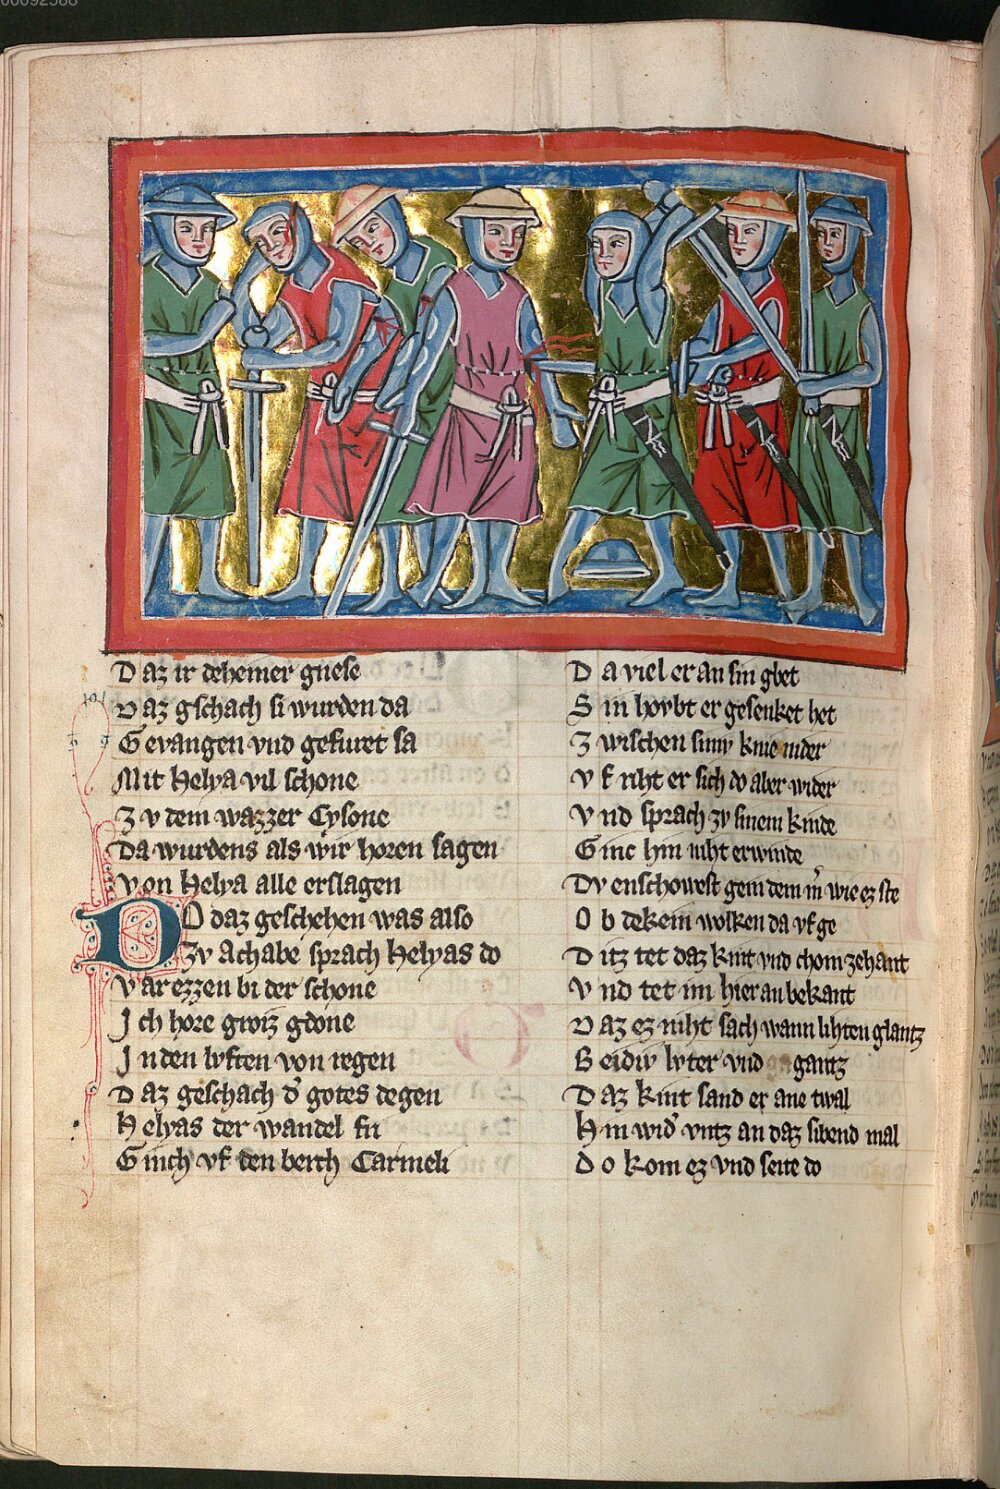 00092588
Daz ir deheiner gnese
Daz gschach si wurden da
Gevangen vnd gefuret sa
Mit Helya vil schone
Zv dem wazzer Cysone
Da wurdens als wir horen sagen
Von Helya alle erslagen
DO daz geschehen was also
Zv Achabe sprach Helyas do
Var ezzen bi der schone
Ich hore groiz gdone
In den lvften von regen
Daz geschach d' gotes degen
Helyas der wandel fri
Ginch vf den berch Carmeli
Da viel er an sin gbet
Sin hovbt er gesenket het
Zwischen siniv knie nider
Vf riht er sich do aber wider
Vnd sprach zv sinem kinde
Ginc hin niht erwinde
Dv enschowest gein dem m' wie ez ste
Ob dekein wolken da vf ge
Ditz tet daz kint vnd chom zehant
Vnd tet im hier an bekant
Daz ez niht sach wann lihten glantz
Beidiv lvter vnd gantz
Daz kint sand er ane twal
Hin wid' vntz an daz sibend mal
Do kom ez vnd seite do